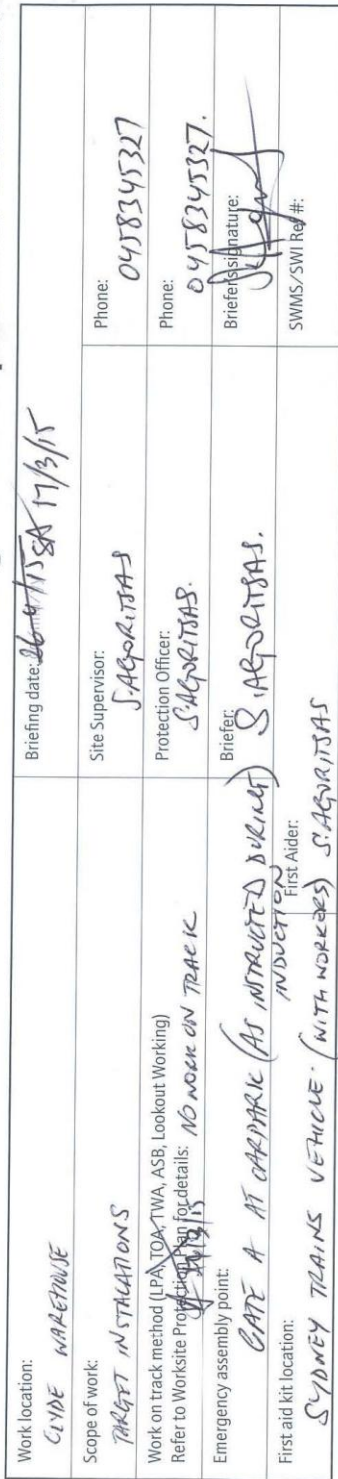 Work location:
CLYDE WAREHOUSE
Briefing date: 26/4/15 SA 17/3/15
Scope of work:
TARGET INSTALATIONS
Site Supervisor:
S.AGORITSAS
Phone:
0458345327
Work on track method (LPA, TOA, TWA, ASB, Lookout Working)
Refer to Worksite Protection Plan for details: NO WORK ON TRACK
Protection Officer:
S.AGORITSAS.
Phone:
0458345327.
Emergency assembly point:
GATE A AT CARPARK (AS INSTRUCTED DURING
INDUCTION)
Briefer: S.AGORITSAS.
Briefer's signature:
First aid kit location:
SYDNEY TRAINS VEHICLE. (WITH WORKERS)
First Aider:
S.AGORITSAS
SWMS/SWI Ref #: